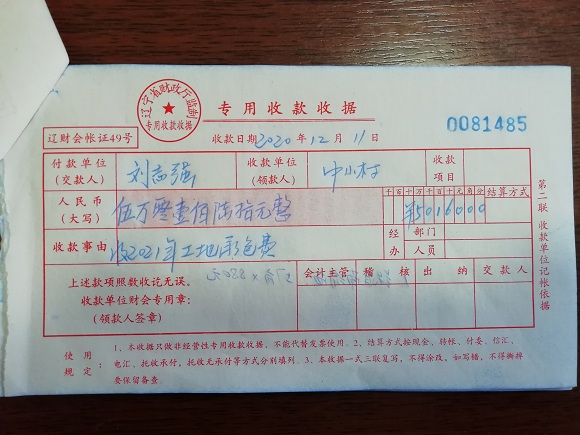 辽宁省财政厅监制
专用收款收据
专用收款收据
辽财会帐证49号
收款日期2020年12月11日
0081485
付款单位(交款人) 刘志强 收款单位(领款人) 中小村 收款项目
人民币(大写) 伍万零壹佰陆拾元整 千百十万千百十元角分 ¥5016000 结算方式
收款事由 收2021年工地承包费 经办 部门 人员
上述款项照数收讫无误。
收款单位财会专用章:
(领款人签章)
会计主管 稽核 出纳 交款人
第二联 收款单位记帐依据
使用规定: 1、本收据只做非经营性专用收款收据,不能代替发票使用。2、结算方式按现金、转帐、付委、信汇、
电汇、托收承付、托收无承付等方式分别填列。3、本收据一式三联复写,不得涂改,如写错,不得撕掉
要保留备查。